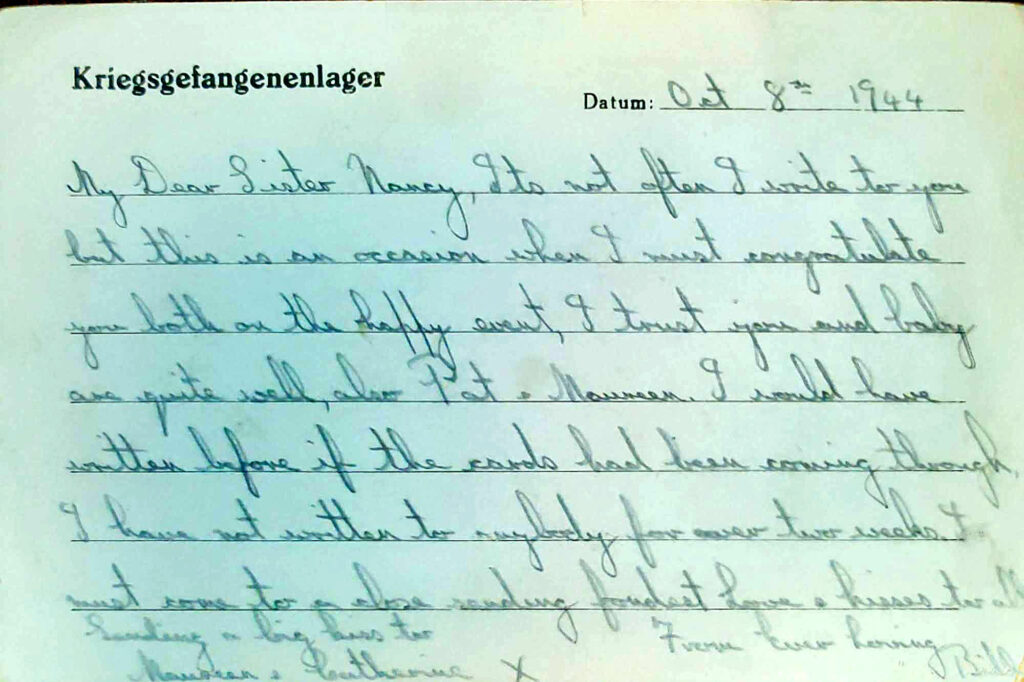 Kriegsgefangenenlager
Datum: Oct 8th 1944
My Dear Sister Nancy, Its not often I write to you
but this is an occasion when I must congratulate
you both on the happy event, I trust you and baby
are quite well, also Pat & Maureen. I would have
written before if the cards had been coming through,
I have not written to anybody for over two weeks. I
must come to a close sending fondest love & kisses to all
Sending a big kiss to
From Ever loving
Maureen & Catherine X
Bill